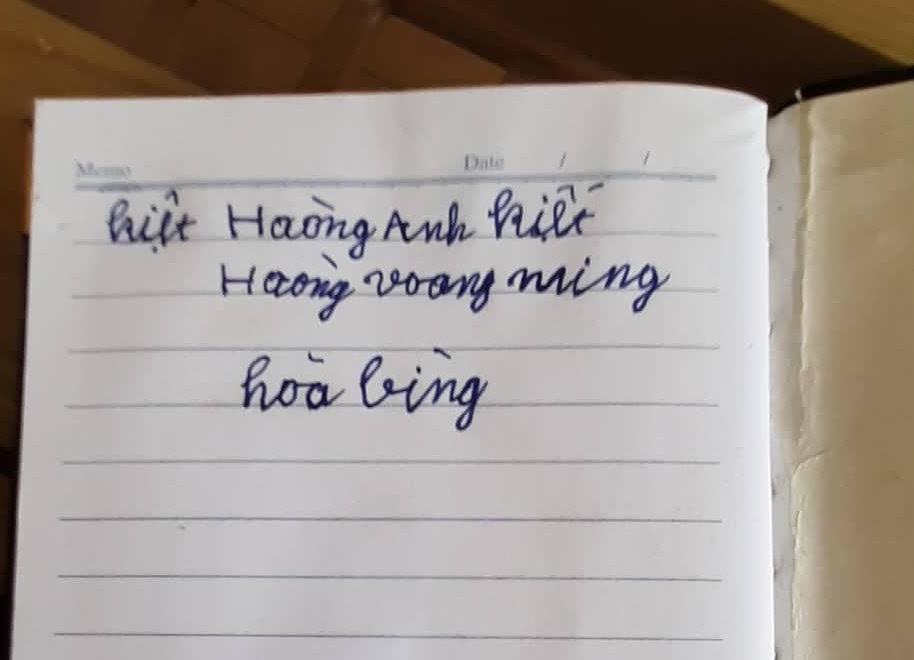 Memo Date / /
kiệt Haòng Anh kiệt
Haòng voang ming
hòa bìng